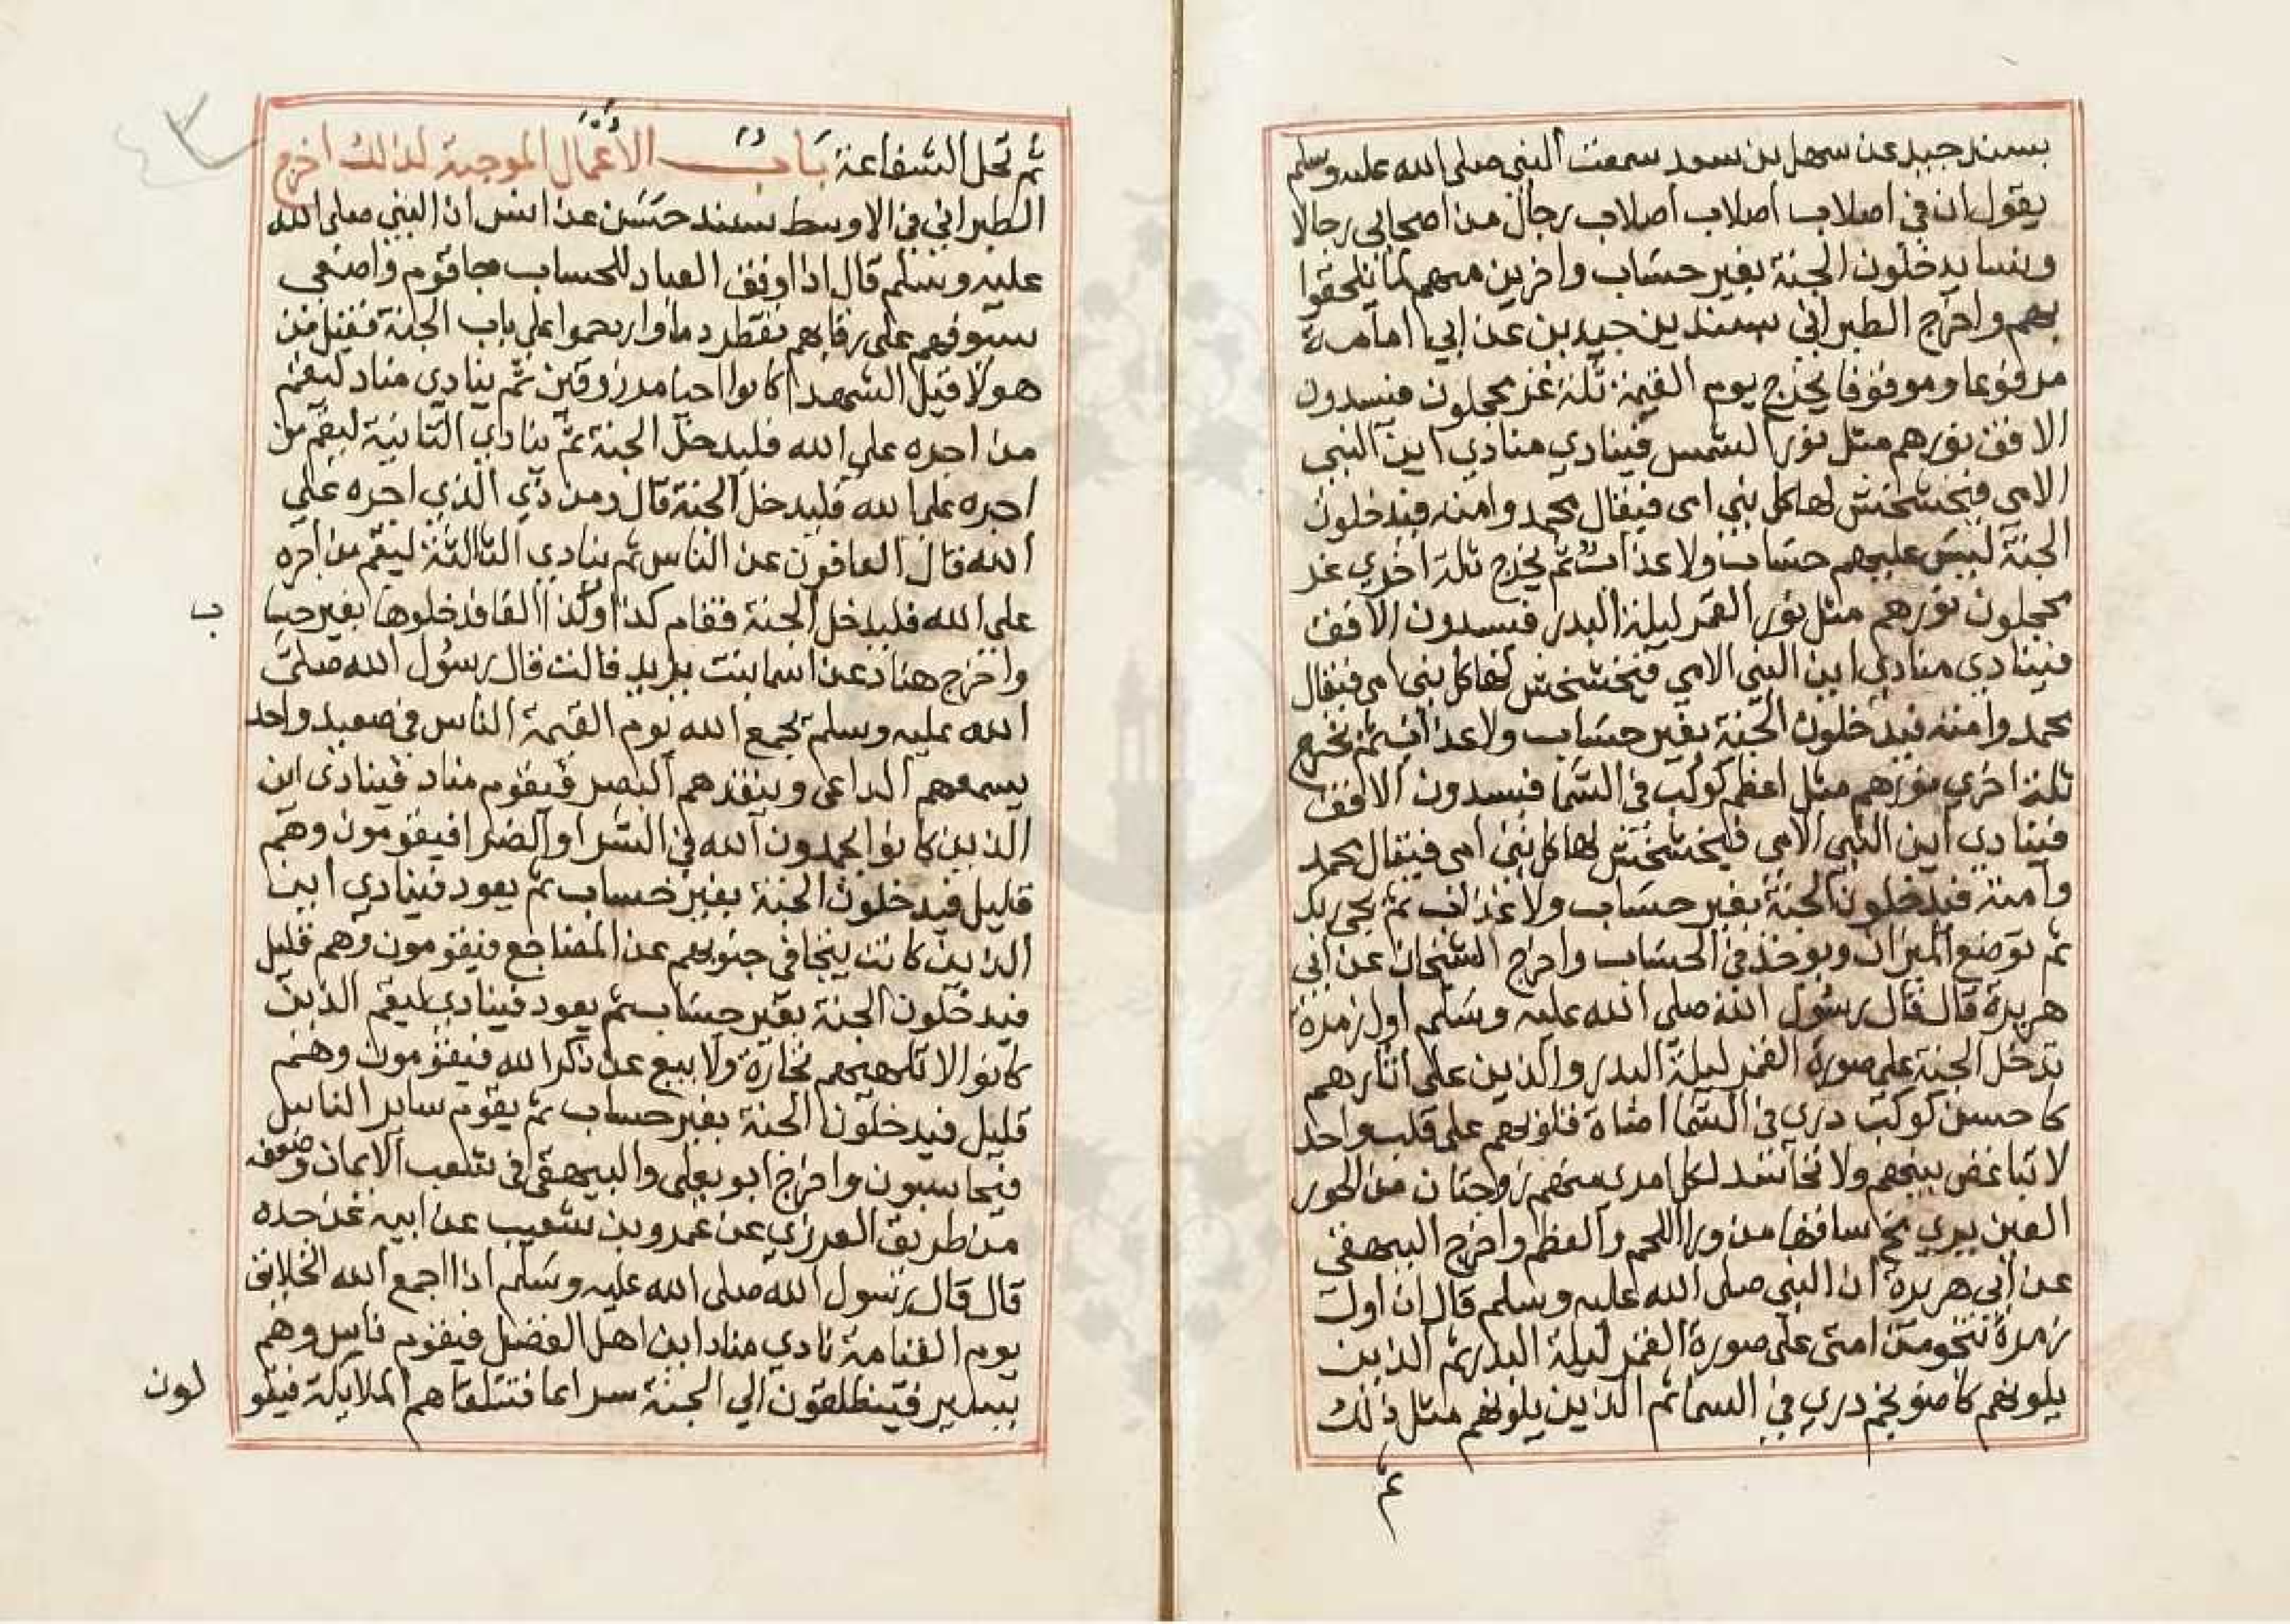 بسند جيد عن سهل بن سعد سمعت النبي صلى الله عليه وسلم
يقول ان في اصلاب أصلاب أصلاب رجال من اصحابي رجالا
ونسا يدخلون الجنة بغير حساب واخرين منهم لما يلحقوا
بهم واخرج الطبراني بسندين جيدين عن ابي امامة
مرفوعا وموقوفا يخرج يوم القيمة ثلة غر محجلون فيسدون
الافق نورهم مثل نور الشمس فينادي منادي اين النبي
الامي فيخشخش لها كل نبي امى فيقال محمد وامته فيدخلون
الجنة ليس عليهم حساب ولا عذاب ثم يخرج ثلة اخري غر
محجلون نورهم مثل نور القمر ليلة البدر فيسدون الافق
فينادي منادي اين النبي الامي فيخشخش لها كل نبي امي فيقال
محمد وامته فيدخلون الجنة بغير حساب ولا عذاب ثم يخرج
ثلة اخري نورهم مثل اعظم كوكب في السما فيسدون الافق
فينادي اين النبي الامي فيخشخش لها كل نبي امي فيقال محمد
وامته فيدخلون الجنة بغير حساب ولا عذاب ثم يجى ربك
ثم توضع الميزان ويوخذ في الحساب واخرج الشيخان عن ابي
هريرة قال قال رسول الله صلى الله عليه وسلم اول زمرة
تدخل الجنة على صورة القمر ليلة البدر والذين على اثارهم
كاحسن كوكب دري في السما اضاة قلوبهم على قلب واحد
لا تباغض بينهم ولا تحاسد لكل امرى منهم زوجتان من الحور
العين يري مخ ساقها من ورا اللحم والعظم واخرج البيهقى
عن ابي هريرة ان النبي صلى الله عليه وسلم قال ان اول
زمرة تنجو من امتى على صورة القمر ليلة البدر ثم الذين
يلونهم كاضو نجم دري في السما ثم الذين يلونهم مثل ذلك
ثم
ثم تحل الشفاعة باب الأعمال الموجبة لذلك اخرج
الطبراني في الاوسط بسند حسن عن انس ان النبي صلى الله
عليه وسلم قال اذا وقف العباد للحساب جا قوم واضعى
سيوفهم على رقابهم تقطر دما وازدحموا على باب الجنة فقيل من
هولا قيل الشهدا كانوا احيا مرزوقين ثم ينادي مناد ليقم
من اجره على الله فليدخل الجنة ثم ينادي الثانية ليقم من
اجره على الله فليدخل الجنة قال ومن ذي الذي اجره على
الله قال العافون عن الناس ثم ينادي الثالثة ليقم من اجره
على الله فليدخل الجنة فقام كذا وكذا الفا فدخلوها بغير حسا
ب
واخرج هناد عن اسما بنت يزيد قالت قال رسول الله صلى
الله عليه وسلم يجمع الله يوم القيمة الناس في صعيد واحد
يسمعهم الداعى وينفذهم البصر فيقوم مناد فينادى اين
الذين كانوا يحمدون الله في السرا والضرا فيقومون وهم
قليل فيدخلون الجنة بغير حساب ثم يعود فينادي اين
الذين كانت تتجافى جنوبهم عن المضاجع فيقومون وهم قليل
فيدخلون الجنة بغير حساب ثم يعود فينادي ليقم الذين
كانوا لا تلهيهم تجارة ولا بيع عن ذكر الله فيقومون وهم
قليل فيدخلون الجنة بغير حساب ثم يقوم ساير الناس
فيحاسبون واخرج ابو يعلى والبيهقى في شعب الايمان وضعفه
من طريق العرزمي عن عمرو بن شعيب عن ابيه عن جده
قال قال رسول الله صلى الله عليه وسلم اذا جمع الله الخلائق
يوم القيامة نادي مناد اين اهل الفضل فيقوم ناس وهم
يسير فينطلقون الي الجنة سراعا فتتلقاهم الملايكة فيقو
لون